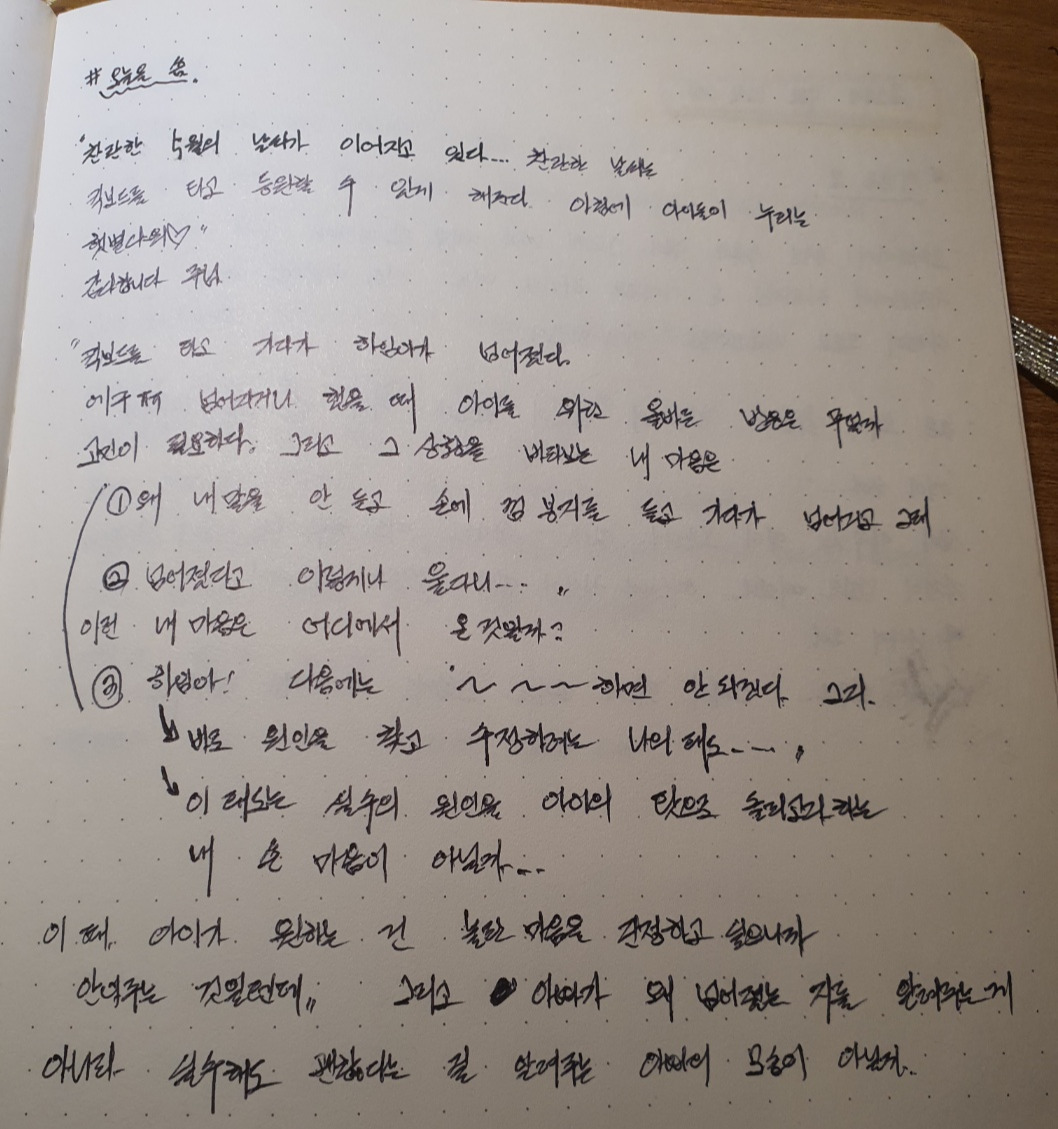 # 오늘을 씀.
"찬란한 5월의 날씨가 이어지고 있다... 찬란한 날씨는
킥보드를 타고 등원할 수 있게 해준다. 아침에 아이들이 누리는
햇볕샤워♡"
감사합니다 주님
"킥보드를 타고 가다가 하임이가 넘어졌다.
에구 넘어지거나 했을 때 아이를 위한 올바른 반응은 무엇일까
고민이 필요하다. 그리고 그 상황을 바라보는 내 마음은
① 왜 내 말을 안 듣고 손에 검 봉지를 들고 가다가 넘어지고 그래
② 넘어졌다고 이렇게나 울다니....,,
이런 내 마음은 어디에서 온 것일까?
③ 하임아! 다음에는 ~ ~ ~ 하면 안 되겠다. 그치.
↳ 바로 원인을 찾고 수정하려는 나의 태도....
↳ 이 태도는 실수의 원인을 아이의 탓으로 돌리려고 하는
내 마음이 아닐까...
이 때, 아이가 원하는 건 놀란 마음을 진정하고 싶으니까
안아주는 것일텐데,, 그리고 아빠가 왜 넘어졌는 지를 알려주는 게
아니라 실수해도 괜찮다는 걸 알려주는 아빠의 모습이 아닐까..